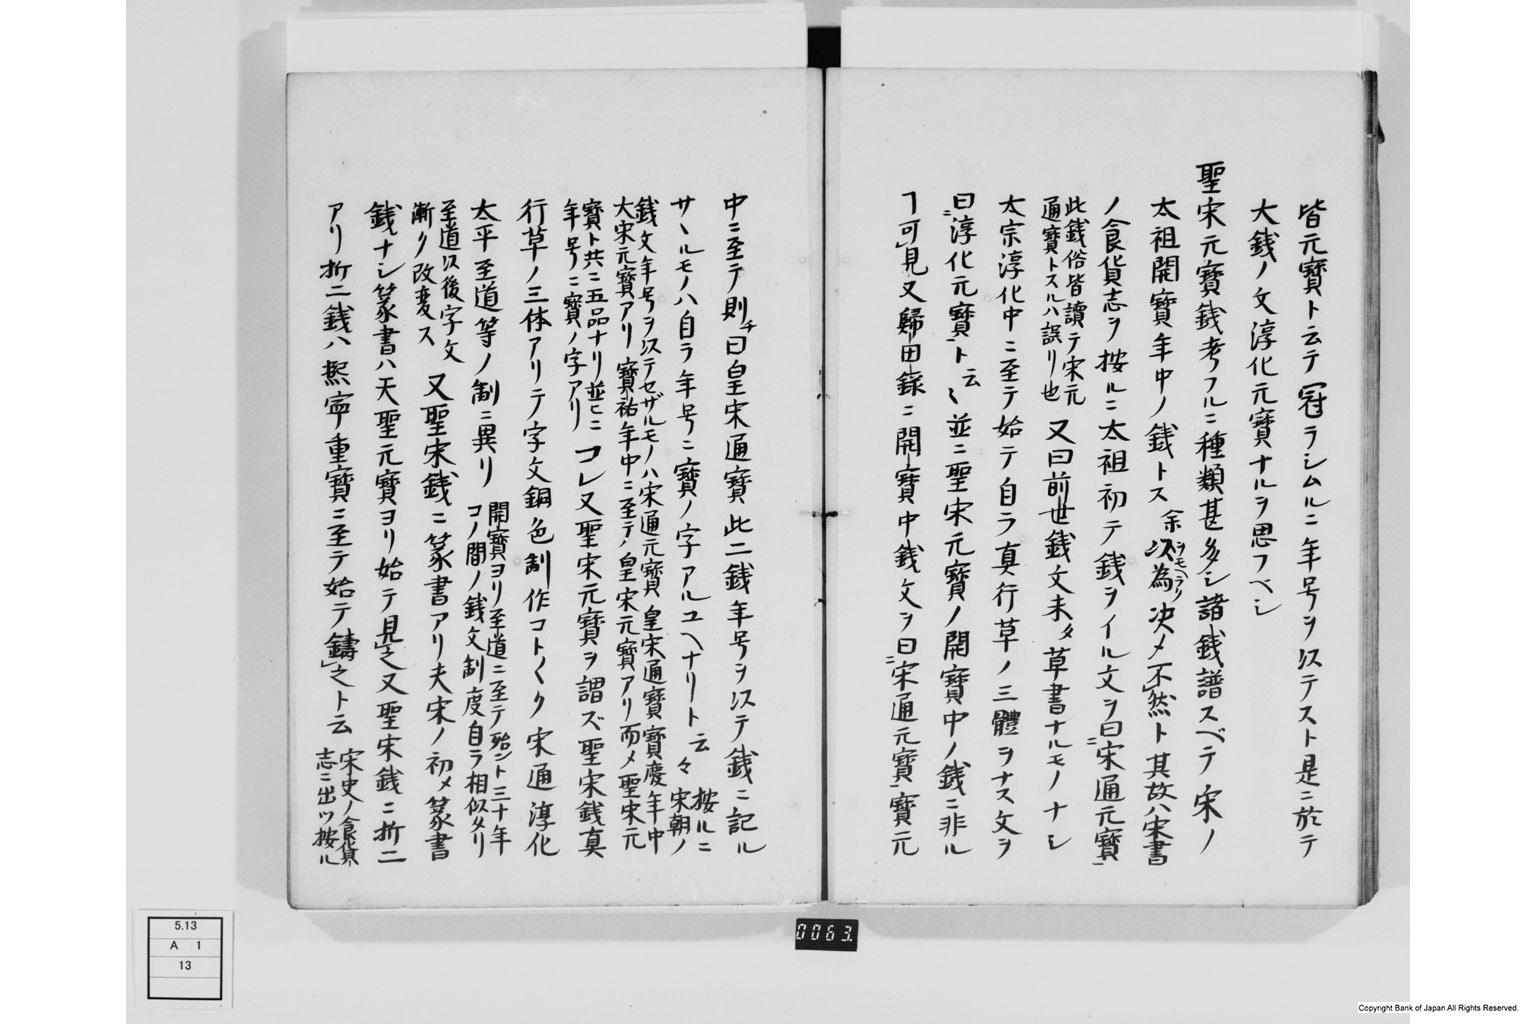 皆元寳ト云テ冠ラシムルニ年号ヲ以テスト是ニ於テ
大銭ノ文淳化元寳ナルヲ思フベシ
聖宋元寳銭考フルニ種類甚多シ諸銭譜スベテ宋ノ
太祖開寳年中ノ銭トス余以為ヲモヘラク决メ不然ト其故ハ宋書
ノ食貨志ヲ按ルニ太祖初テ銭ヲイル文ヲ曰ニ宋通元寳
此銭俗皆讀テ宋元
通寳トスルハ誤リ也
又曰前世銭文未タ草書ナルモノナシ
太宗淳化中ニ至テ始テ自ラ真行草ノ三體ヲナス文ヲ
曰ニ淳化元寳ト云〻並ニ聖宋元寳ノ開寳中ノ銭ニ非ル
ヿ可見又歸田録ニ開寳中銭文ヲ曰ニ宋通元寳寳元
中ニ至テ則チ曰皇宋通寳此二銭年号ヲ以テ銭ニ記ル
サヽルモノハ自ラ年号ニ寳ノ字アルユヘナリト云々
按ルニ
宋朝ノ
銭文年号ヲ以テセザルモノハ宋通元寳皇宋通寳寳慶年中
大宋元寳アリ寳祐年中ニ至テハ皇宋元寳アリ而メ聖宋元
寳ト共ニ五品ナリ並ヒニ
年号ニ寳ノ字アリ
コレ又聖宋元寳ヲ謂ズ聖宋銭真
行草ノ三体アリテ字文銅色制作コト〱ク宋通淳化
太平至道等ノ制ニ異リ
開寳ヨリ至道ニ至テ殆ント三十年
コノ間ノ銭文制度自ラ相似タリ
至道以後字文
漸ク改変ス
又聖宋銭ニ篆書アリ夫宋ノ初メ篆書
銭ナシ篆書ハ天聖元寳ヨリ始テ見之又聖宋銭ニ折二
アリ折二銭ハ熈寧重寳ニ至テ始テ鑄之ト云
宋史ノ食貨
志ニ出ツ按ル
0063.
5.13
A 1
13
Copyright Bank of Japan All Rights Reserved.